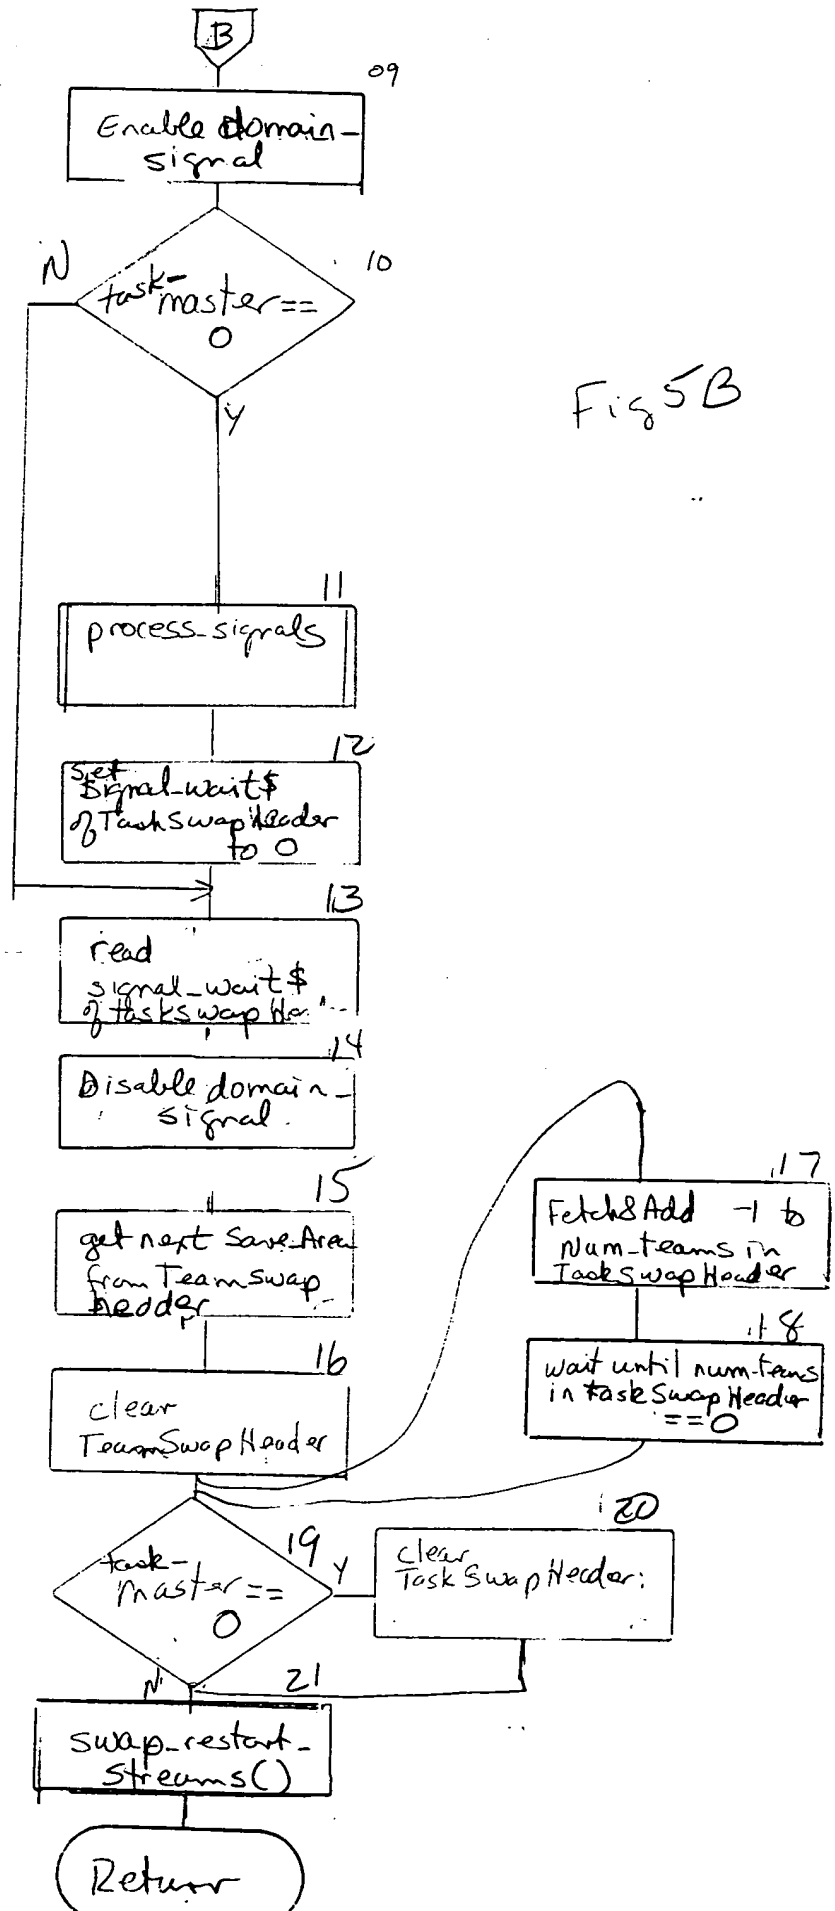 B
09
Enable domain-
signal
10
N
task-
master ==
0
Y
Fig 5B
11
process_signals
12
set
signal_wait$
of TaskSwapHeader
to 0
13
read
signal_wait$
of taskswap
14
Disable domain-
signal.
15
get next Save_Area
from Teamswap
header
16
clear
TeamSwapHeader
17
Fetch&Add -1 to
Num_teams in
TaskSwapHeader
18
wait until num-teams
in taskSwapHeader
== 0
19
task-
master ==
0
Y
N
20
clear
TaskSwapHeader:
21
swap_restart_
streams()
Return